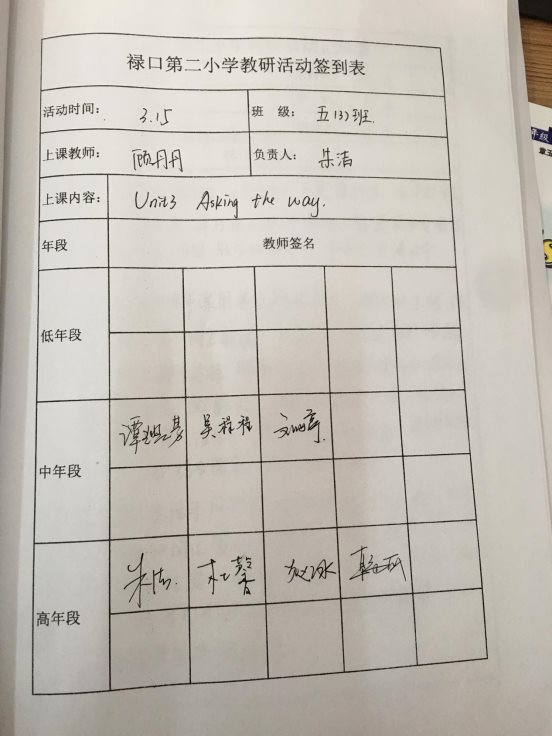 禄口第二小学教研活动签到表
活动时间: 3.15 班 级: 五(3)班.
上课教师: 顾丹丹 负责人: 朱洁
上课内容: Unit3 Asking the way.
年段 教师签名
低年段
中年段 吴程程
高年段 朱洁. 杜馨